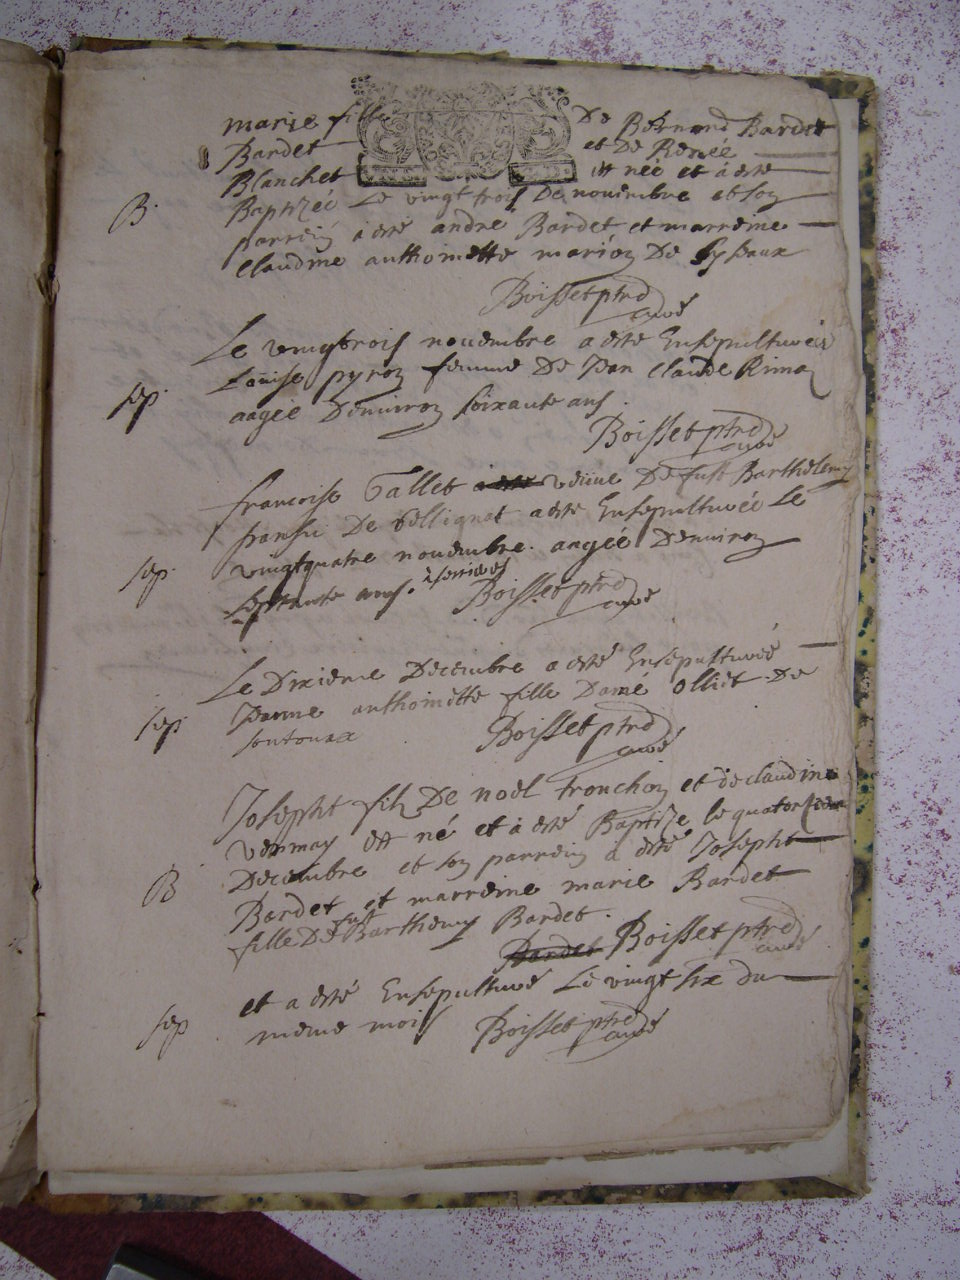 marie fille De Bernard Bardet
Bardet et De Renée
Blanchet est née et a esté
B. Baptizéé Le vingt trois De novembre et son
parrein a esté andre Bardet et marreine
Claudine anthoinette marion De
Boisset ptre curé
Le vingtrois novembre a esté Ensepulturéé
sep. Louise pyron femme De Jean Claude Rimo
aagéé Denviron soixante ans.
Boisset ptre curé
francoise Gallet veuve De fust Barthelemy
De a esté Ensepulturéé Le
sep. vingtquatre novembre. aagéé Denviron
septante ans. Boisset ptre curé
Le Dixieme Decembre a esté Ensepulturéé
sep. Jeanne anthoinette fille Damé Olliet De
Boisset ptre curé
Josepht filz De noel tronchon et de claudine
vermay est né et a esté Baptize le quatorzieme
B Decembre et son parrein a esté Josepht
Bardet et marreine marie Bardet
fille De fust Barthlemy Bardet.
Boisset ptre curé
et a esté Ensepulturé Le vingt six du
sep meme mois Boisset ptre curé